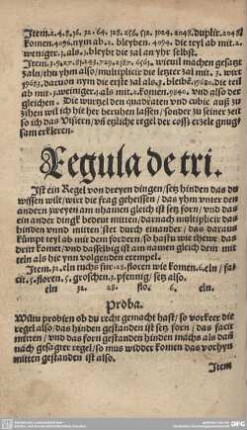 Item.2.4.8.16. 32.64. 128. 256. 512. 1024. 2048. duplir. 2048
komen.4096. nym ab.2. bleyben. 4094. die teyl ab mit.1.
weniger.1. als.1. bleybt die zal an yhr selbst.
Item.3.9.27.81.243.729.2187.6561. wieuil machen gesatzte
zaln/ thu yhm also/ multiplicir die letzter zal mit.3. wirt
19683. daruon nym die erste zal als.3. bleibē.19680. die teil
ab mit.3. weiniger.1. als mit.2. komen.9840. vnd also der
gleichen. Die wurtzel den quadraten vnd cubic auß zu
zihen wil ich hie her beruhen lassen/ sonder zu seiner zeit
so ich das Visiern/ vn̄ etzliche regel der coss erzele gnug
sam erkleren.
Regula de tri.
Ist ein Regel von dreyen dingen/ setz hinden das du
wissen wilt/ wirt die frag geheissen/ das yhm vnter den
andern zweyen am nhamen gleich ist setz forn/ vnd das
ein ander dingk bedeut mitten/ darnach multiplicir das
hinden vnnd mitten stet durch einander/ das daraus
kümpt teyl ab mit dem fordern/ so hastu wie theuer das
drit komet/ vnd dasselbig ist am namen gleich dem mit
teln als hie ynn volgenden exempel.
Item.32. eln tuchs für.28. floren wie komen.6. eln/ fa⸗
cit.5. floren.5. groschen.3. pfennig/ setz also.
eln 32. 28. flo. 6. eln.
Proba.
Wiltu probieren ob du recht gemacht hast/ so vorkere die
regel also/ das hinden gestanden ist setz forn/ das facit
mitten/ vnd das forn gestanden hinden machs als dan
nach gesagter regel/ so mus widder komen das vorhyn
mitten gestanden ist also.
Item